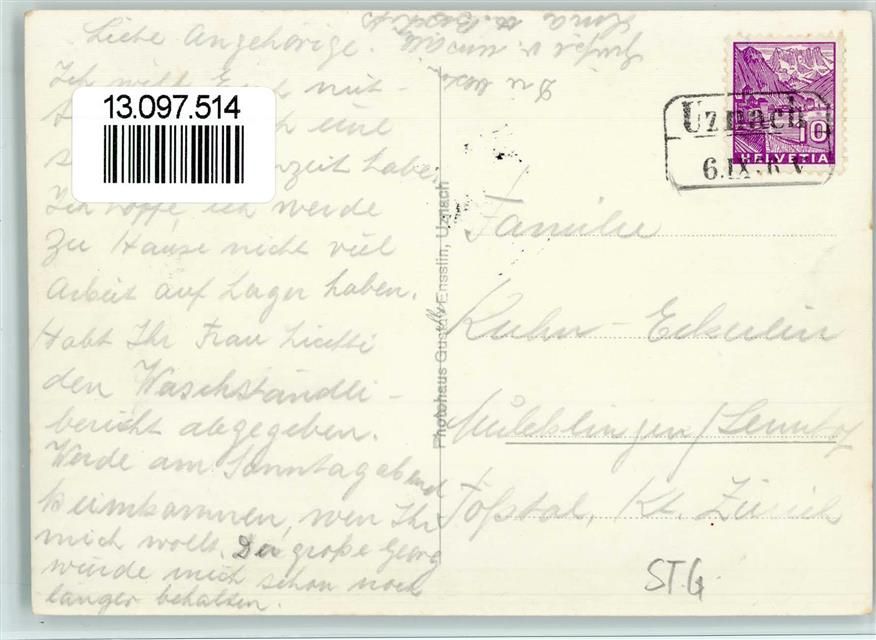 Liebe Angehörige.
Ich will Euch mit-
eine
zeit habe.
Ich hoffe, ich werde
zu Hause nicht viel
Arbeit auf Lager haben.
Habt Ihr Frau Liechti
den Waschständli-
bericht abgegeben.
Werde am Sonntagabend
heimkommen, wen Ihr
mich wollt. Der große Georg
würde mich schon noch
länger behalten.
13.097.514
Photohaus Gustav Ensslin, Uznach
Uznach
6.IX.
10
HELVETIA
Familie
Kuhn-Eckerlin
Mülchlingen/Sennhof
Tößtal, Kt. Zürich
ST.G